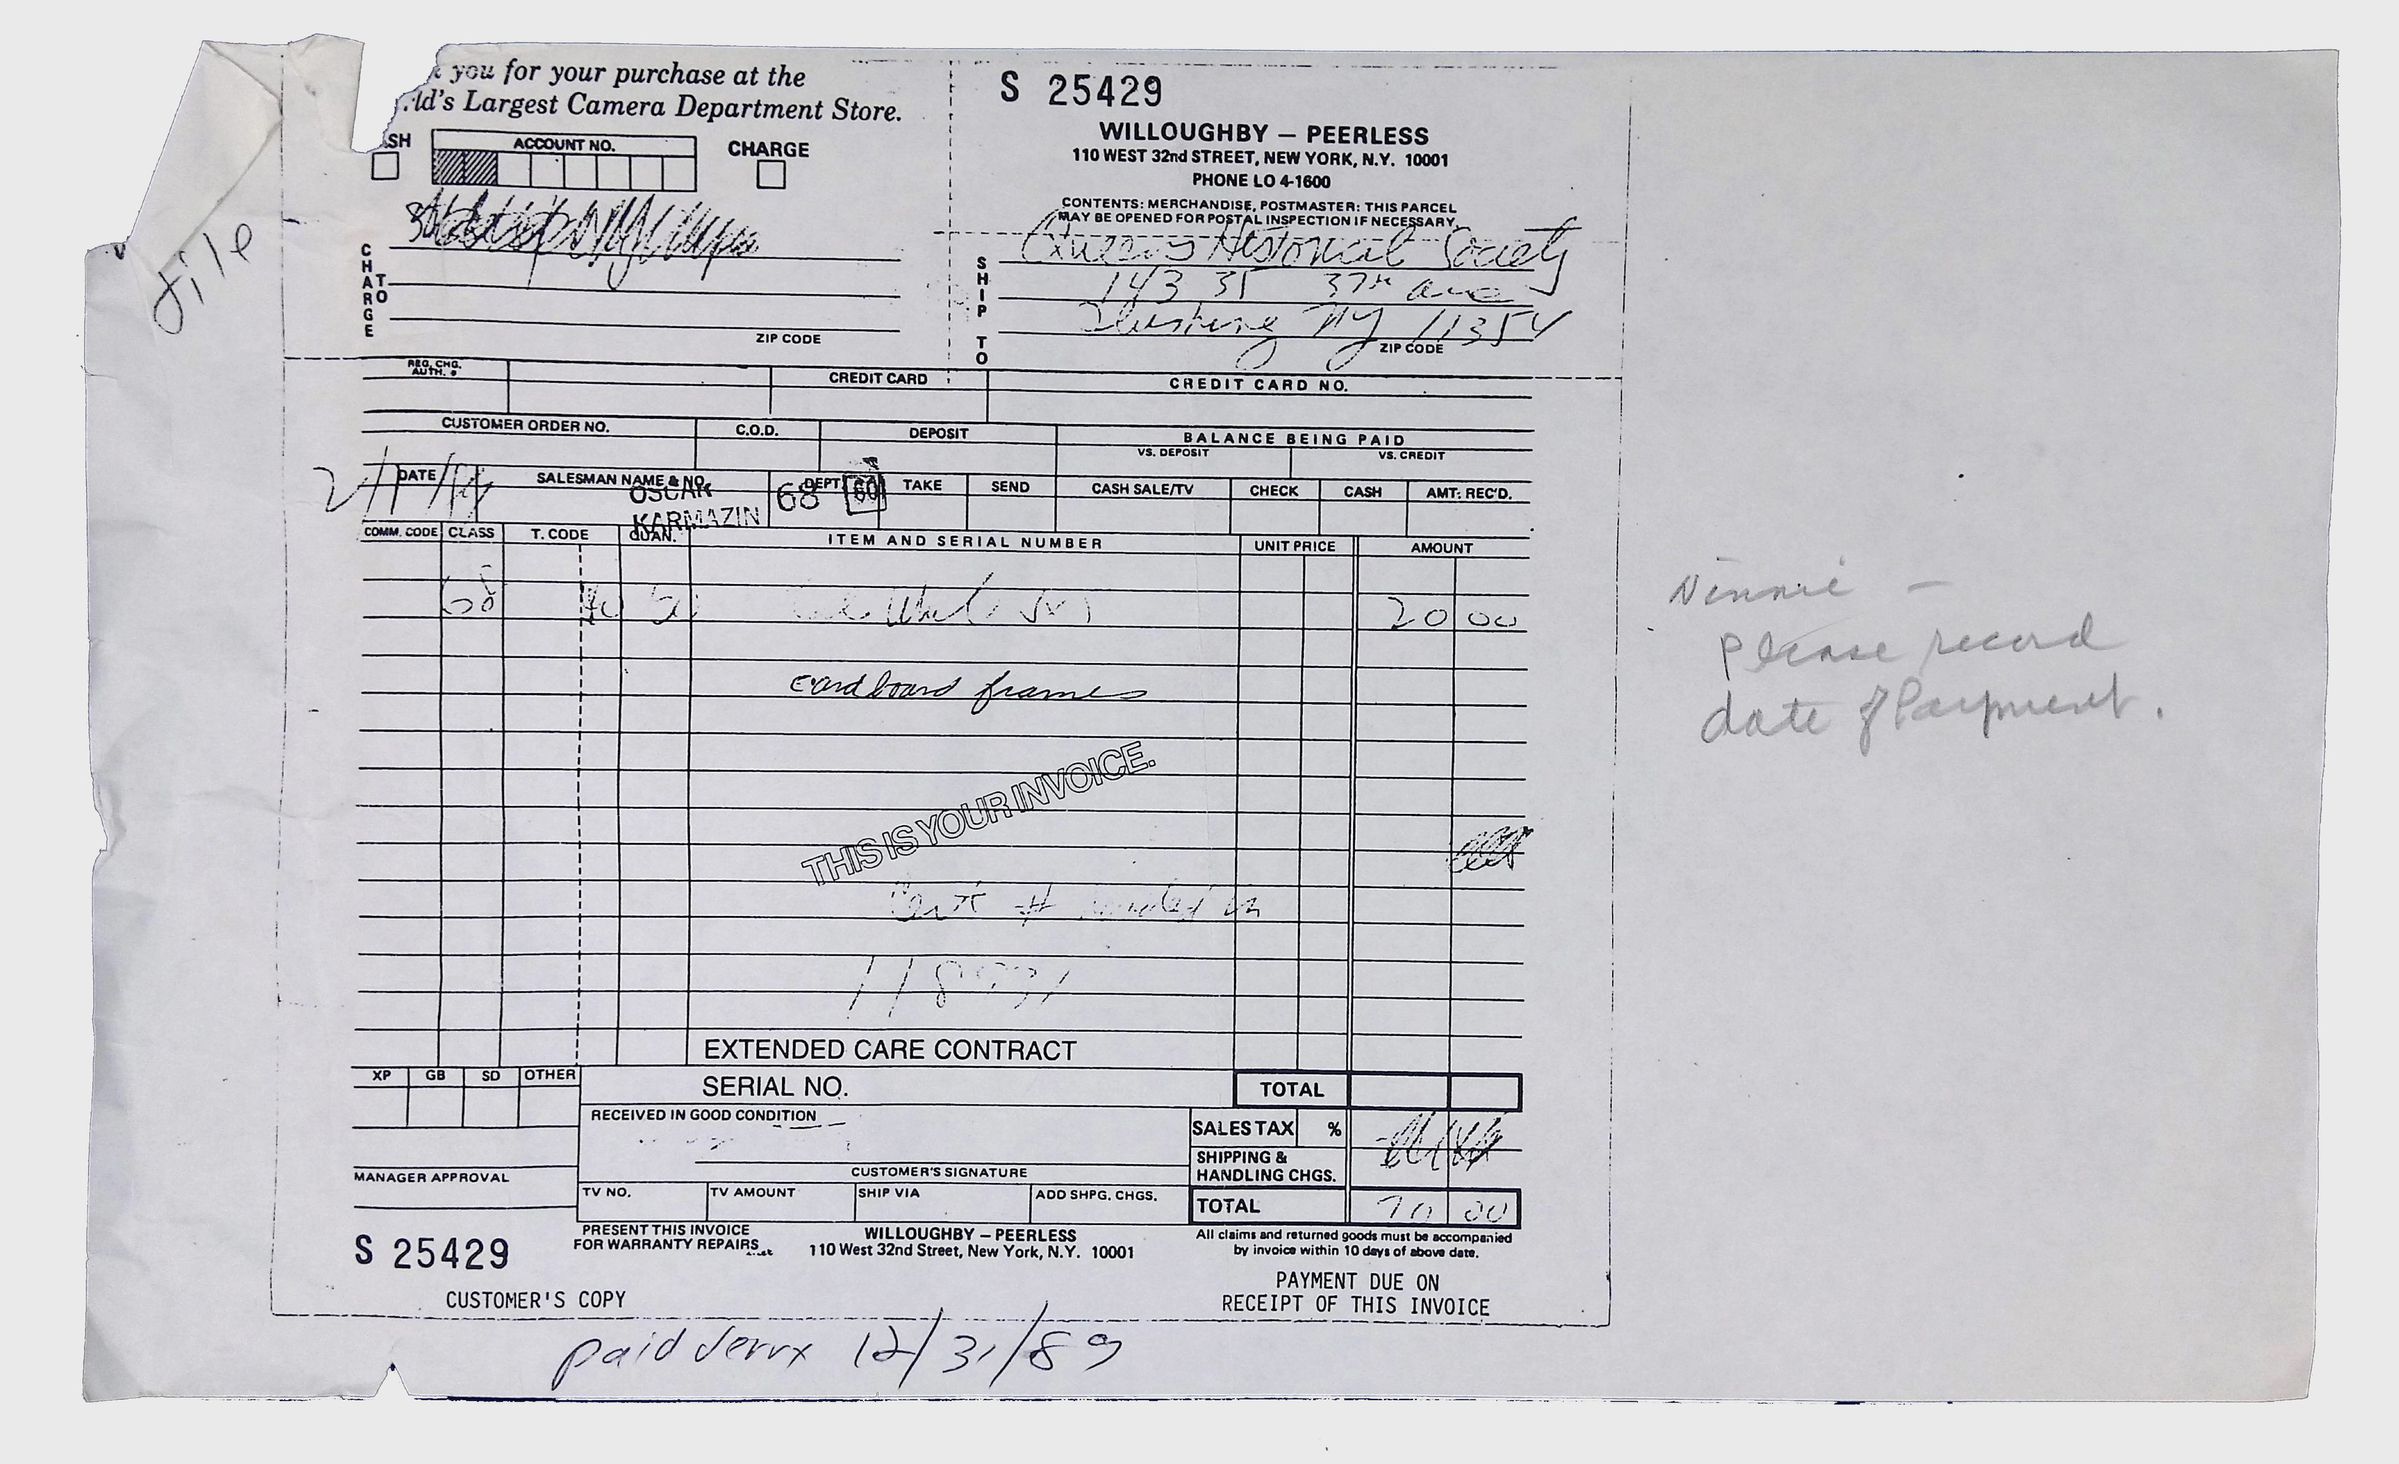 File
you for your purchase at the
ld's Largest Camera Department Store.
SH
ACCOUNT NO.
CHARGE
S 25429
WILLOUGHBY – PEERLESS
110 WEST 32nd STREET, NEW YORK, N.Y. 10001
PHONE LO 4-1600
CONTENTS: MERCHANDISE, POSTMASTER: THIS PARCEL
MAY BE OPENED FOR POSTAL INSPECTION IF NECESSARY.
CHARGE TO
ZIP CODE
SHIP TO
Queens Historical Society
143 35 37th ave
Flushing NY 11354
ZIP CODE
REG. CHG. AUTH. #
CREDIT CARD
CREDIT CARD NO.
CUSTOMER ORDER NO.
C.O.D.
DEPOSIT
BALANCE BEING PAID
VS. DEPOSIT
VS. CREDIT
DATE
SALESMAN NAME & NO.
OSCAR
KARMAZIN
DEPT.
68
60
TAKE
SEND
CASH SALE/TV
CHECK
CASH
AMT: REC'D.
COMM. CODE CLASS T. CODE QUAN. ITEM AND SERIAL NUMBER UNIT PRICE AMOUNT
68 50 20 00
cardboard frames
THIS IS YOUR INVOICE.
EXTENDED CARE CONTRACT
XP GB SD OTHER
SERIAL NO.
TOTAL
RECEIVED IN GOOD CONDITION
SALES TAX %
SHIPPING &
HANDLING CHGS.
CUSTOMER'S SIGNATURE
MANAGER APPROVAL
TV NO.
TV AMOUNT
SHIP VIA
ADD SHPG. CHGS.
TOTAL 00
S 25429
PRESENT THIS INVOICE
FOR WARRANTY REPAIRS
WILLOUGHBY – PEERLESS
110 West 32nd Street, New York, N.Y. 10001
All claims and returned goods must be accompanied
by invoice within 10 days of above date.
CUSTOMER'S COPY
PAYMENT DUE ON
RECEIPT OF THIS INVOICE
paid 12/31/89
Ninnie –
Please record
date of Payment.